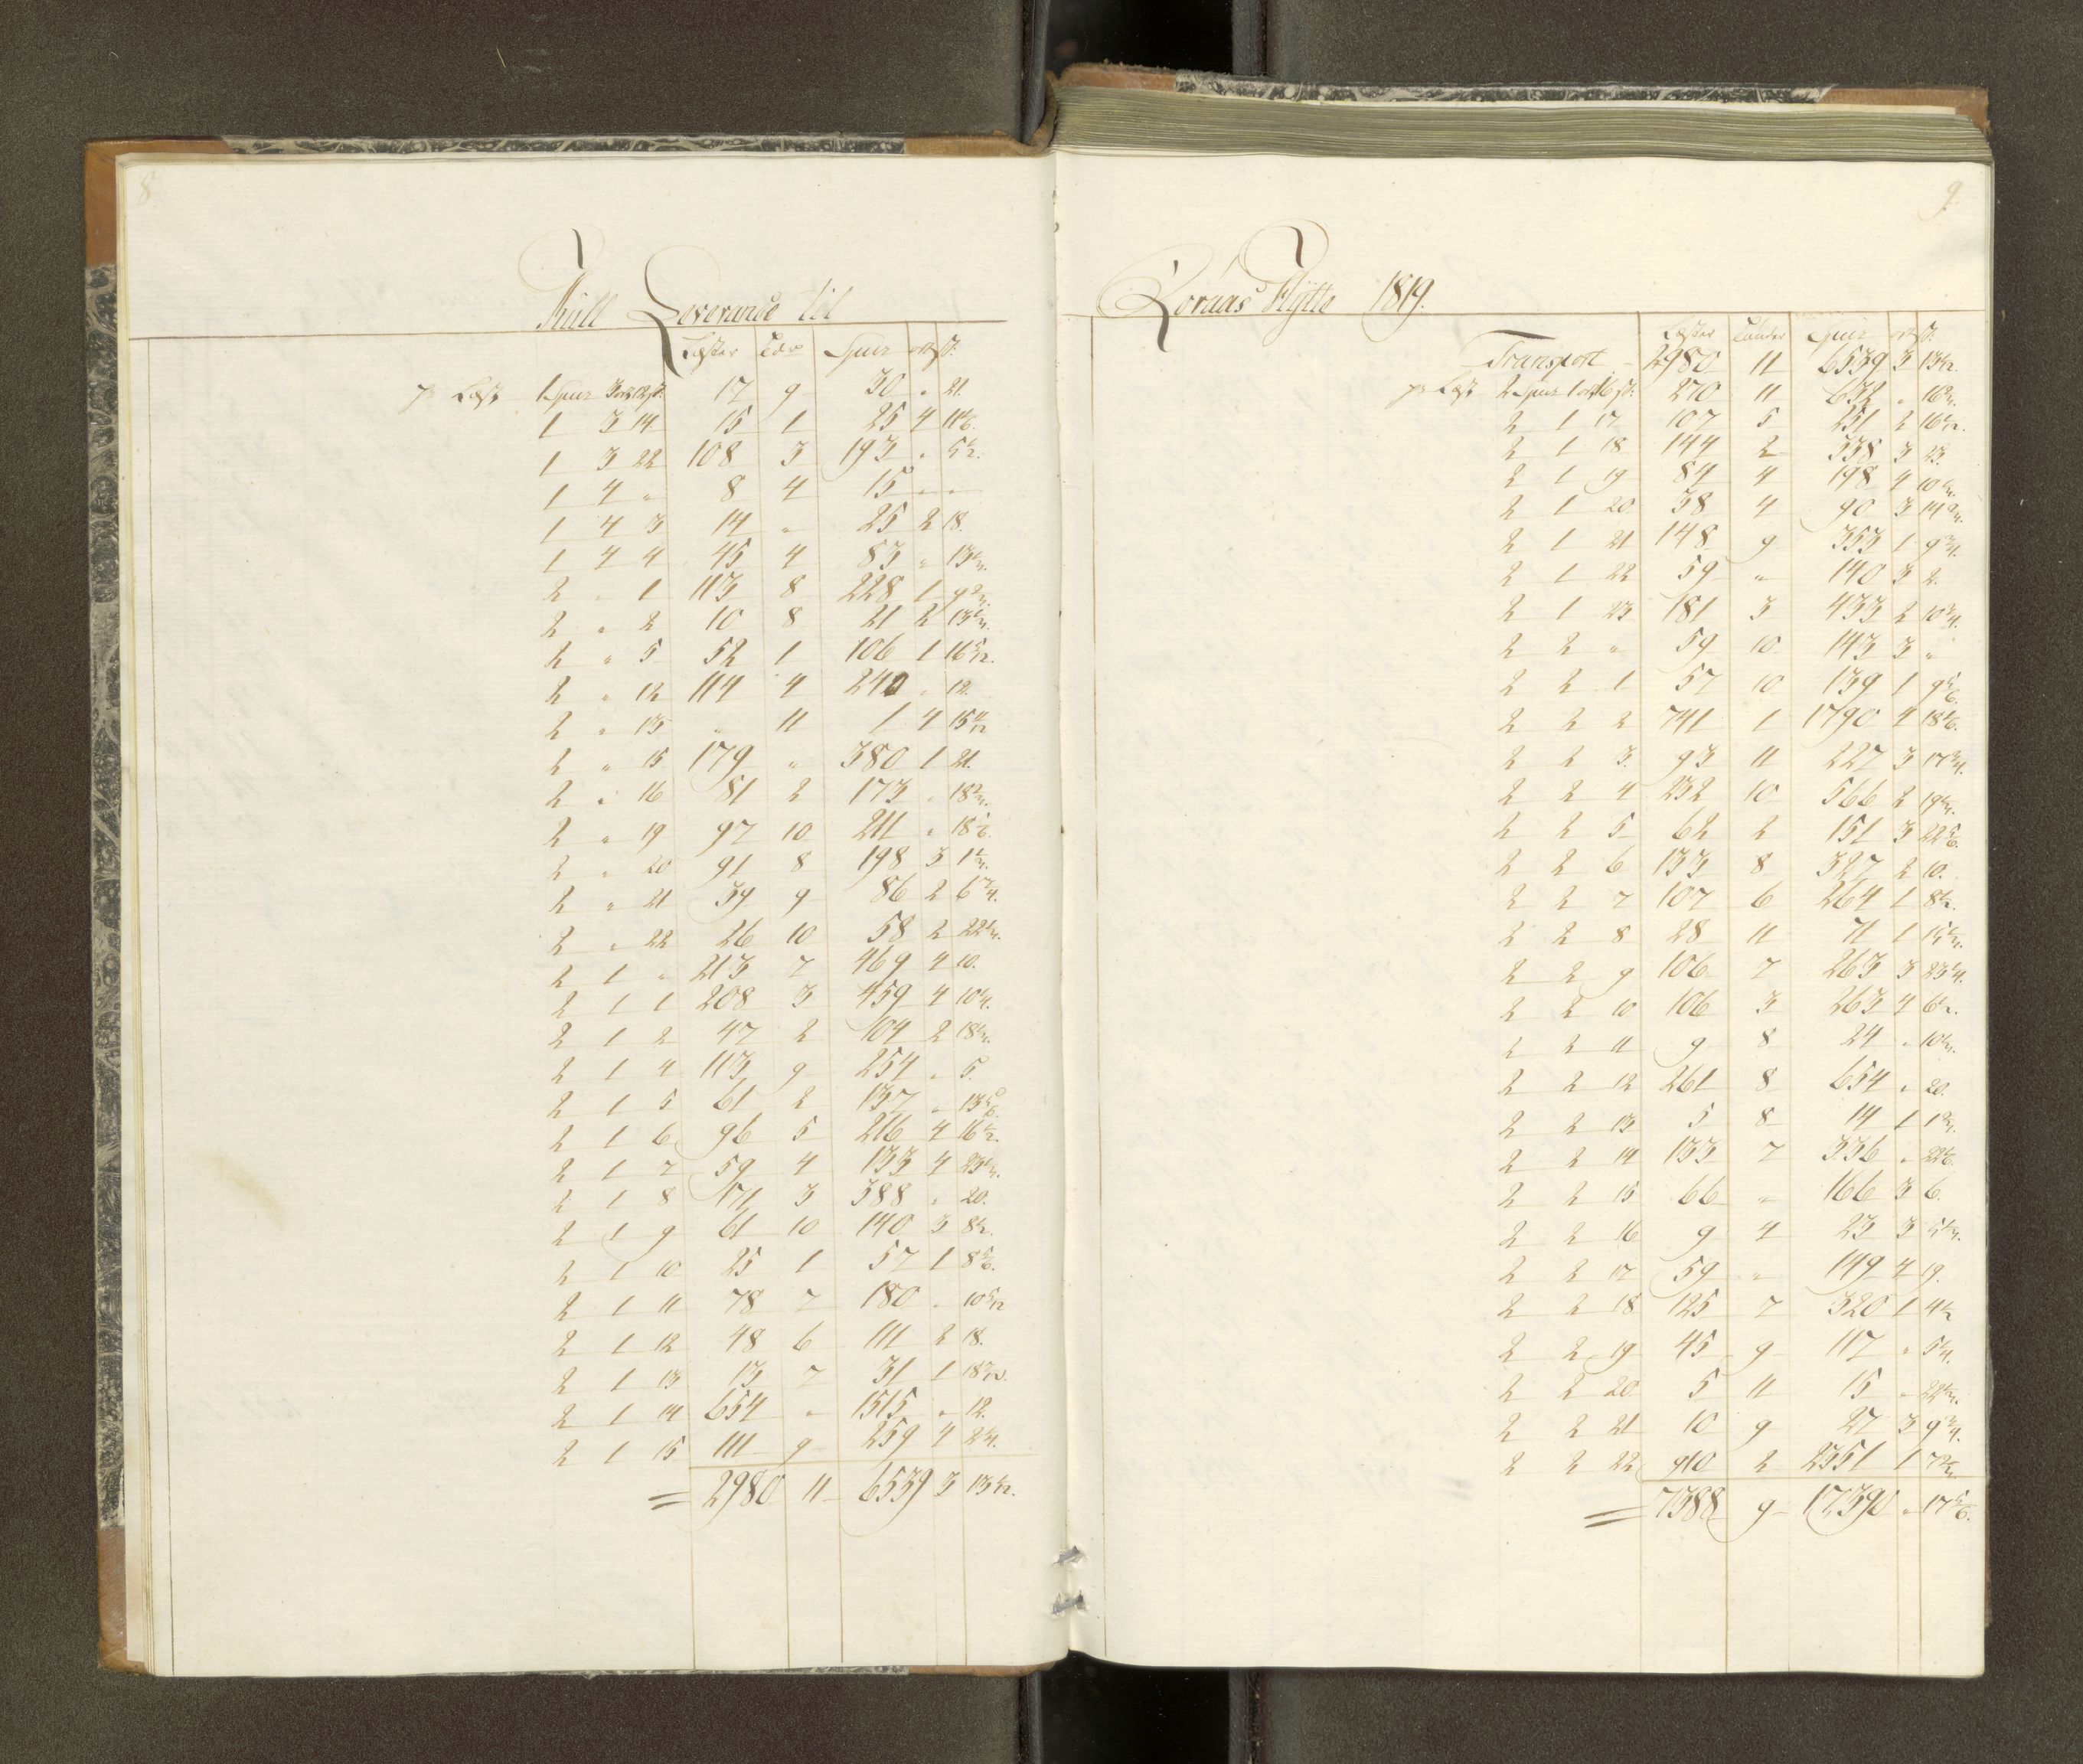 8.
Kull Leverance til
Læster Tdr Spec ort ß.
pr Læst 1 Spec 3 ort 12 ß. 17 9 30 " 21.
1 3 14 15 1 25 4 11 1/6.
1 3 22 108 3 193 " 5 1/2.
1 4 " 8 4 15 " "
1 4 3 14 " 25 2 18.
1 4 4 45 4 83 " 13 1/3.
2 " 1 113 8 228 1 9 2/3.
2 " 2 10 8 21 2 13 1/3.
2 " 5 52 1 106 1 16 5/12.
2 " 12 114 4 240 " 12.
2 " 13 " 11 1 4 15 11/12
2 " 15 179 " 380 1 21.
2 " 16 81 2 173 " 18 2/3.
2 " 19 97 10 211 " 18 5/6.
2 " 20 91 8 198 3 1 1/3.
2 " 21 39 9 86 2 6 3/4.
2 " 22 26 10 58 2 22 1/3.
2 1 " 213 7 469 4 10.
2 1 1 208 3 459 4 10 1/4.
2 1 2 47 2 104 2 18 1/3.
2 1 4 113 9 254 " 5.
2 1 5 61 2 137 " 13 5/6.
2 1 6 96 5 216 4 16 1/2.
2 1 7 59 4 133 4 23 1/3.
2 1 8 171 3 388 " 20.
2 1 9 61 10 140 3 8 1/2.
2 1 10 25 1 57 1 8 5/6.
2 1 11 78 7 180 " 10 5/12
2 1 12 48 6 111 2 18.
2 1 13 13 7 31 1 18 7/12.
2 1 14 654 " 1515 " 12.
2 1 15 111 9 259 4 2 1/4.
= 2980 11 6539 3 13 1/2.
9.
Röraas Hytte 1819.
Læster Tönder Spec ort ß.
Transport 2980 11 6539 3 13 1/2.
pr Læst 2 Spec 1 ort 16 ß. 270 11 632 " 16 2/3.
2 1 17 107 5 251 2 16 1/12.
2 1 18 144 2 338 3 23.
2 1 19 84 4 198 4 10 1/3.
2 1 20 38 4 90 3 14 2/3.
2 1 21 148 9 353 1 9 3/4.
2 1 22 59 " 140 3 2.
2 1 23 181 3 433 2 10 3/4.
2 2 " 59 10 143 3 "
2 2 1 57 10 139 1 9 5/6.
2 2 2 741 1 1790 4 18 1/6.
2 2 3 93 11 227 3 17 3/4.
2 2 4 232 10 566 2 19 1/3.
2 2 5 62 2 151 3 22 5/6.
2 2 6 133 8 327 2 10.
2 2 7 107 6 264 1 8 1/2.
2 2 8 28 11 71 1 15 1/3.
2 2 9 106 7 263 3 23 1/4.
2 2 10 106 3 263 4 6 1/2.
2 2 11 9 8 24 " 10 1/3.
2 2 12 261 8 654 " 20.
2 2 13 5 8 14 1 1 2/3.
2 2 14 133 7 336 " 22 1/6.
2 2 15 66 " 166 3 6.
2 2 16 9 4 23 3 5 1/3.
2 2 17 59 " 149 4 19.
2 2 18 125 7 320 1 4 1/2
2 2 19 45 9 117 " 5 1/4.
2 2 20 5 11 15 " 22 1/3.
2 2 21 10 9 27 3 9 3/4.
2 2 22 910 2 2351 1 7 2/3
= 7388 9 17,390 " 17 5/6.